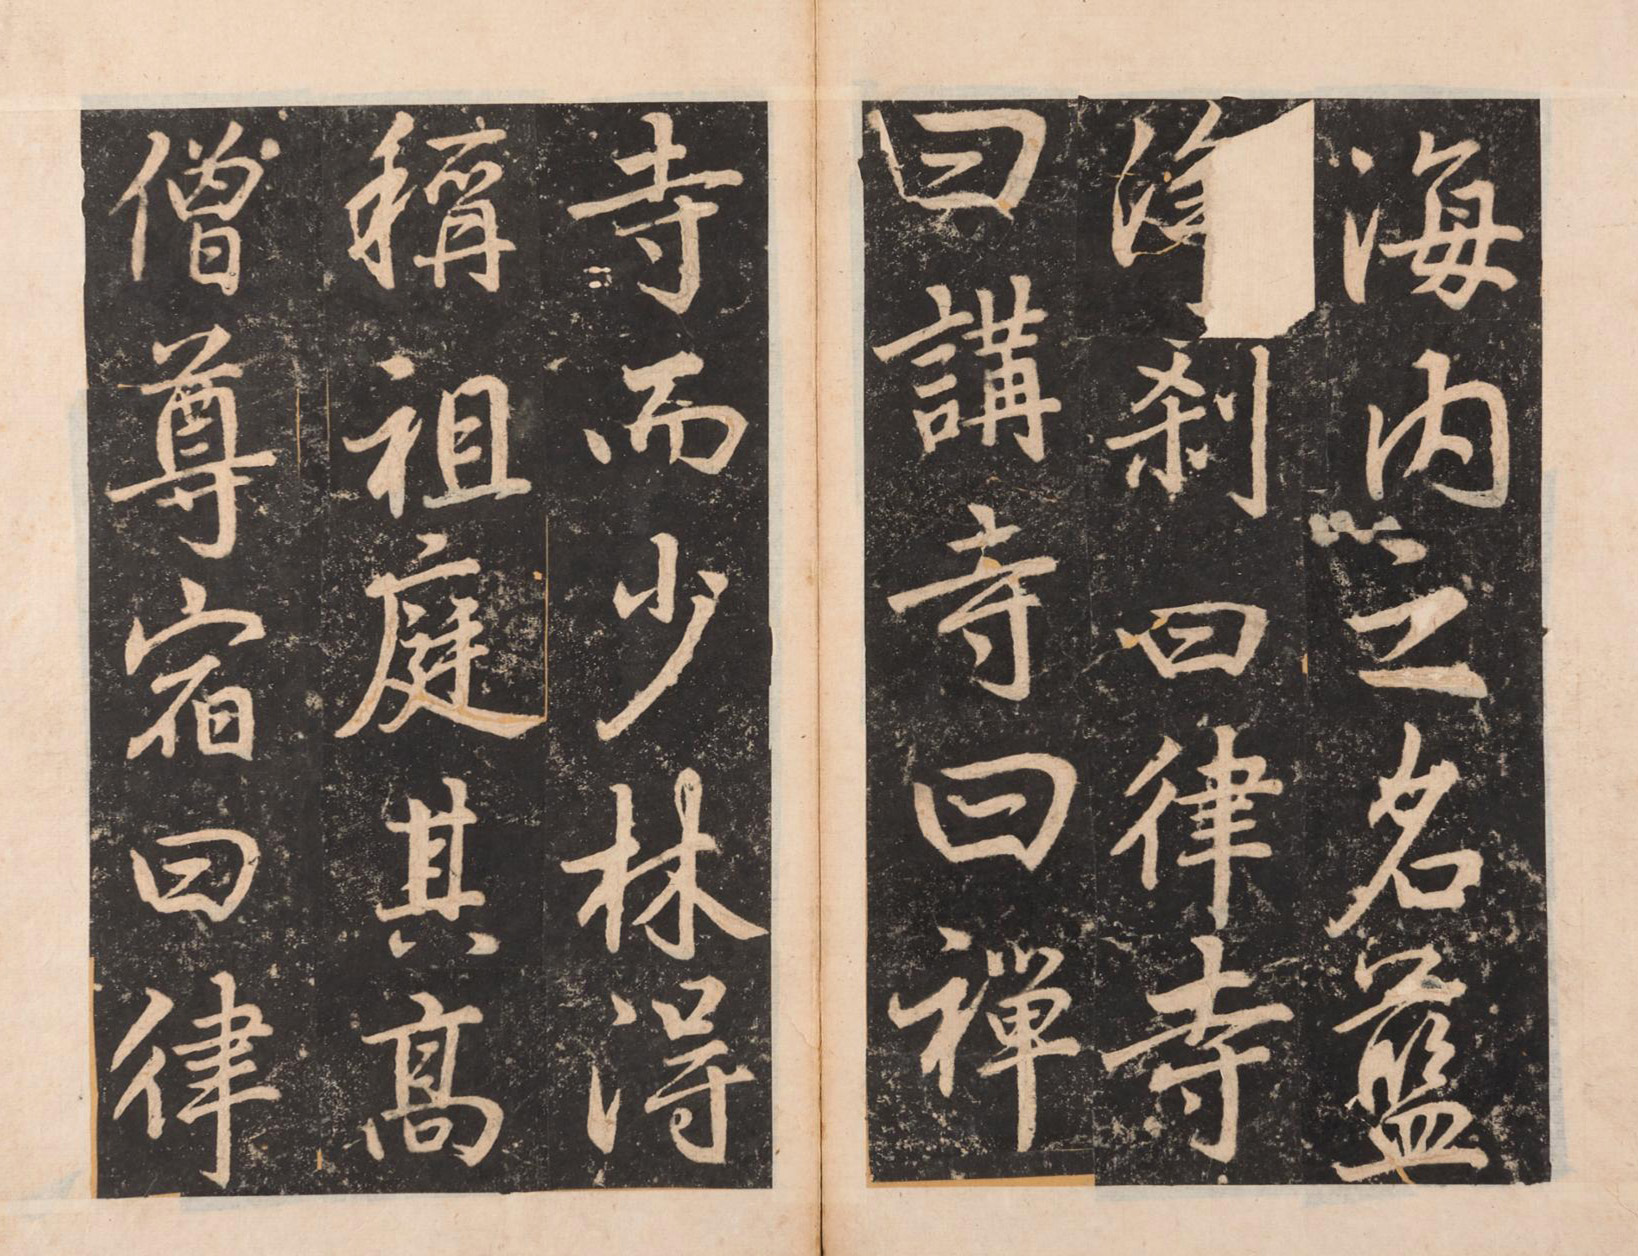 海内之名藍
刹曰律寺
曰講寺曰禪
寺而少林得
稱祖庭其髙
僧尊宿曰律